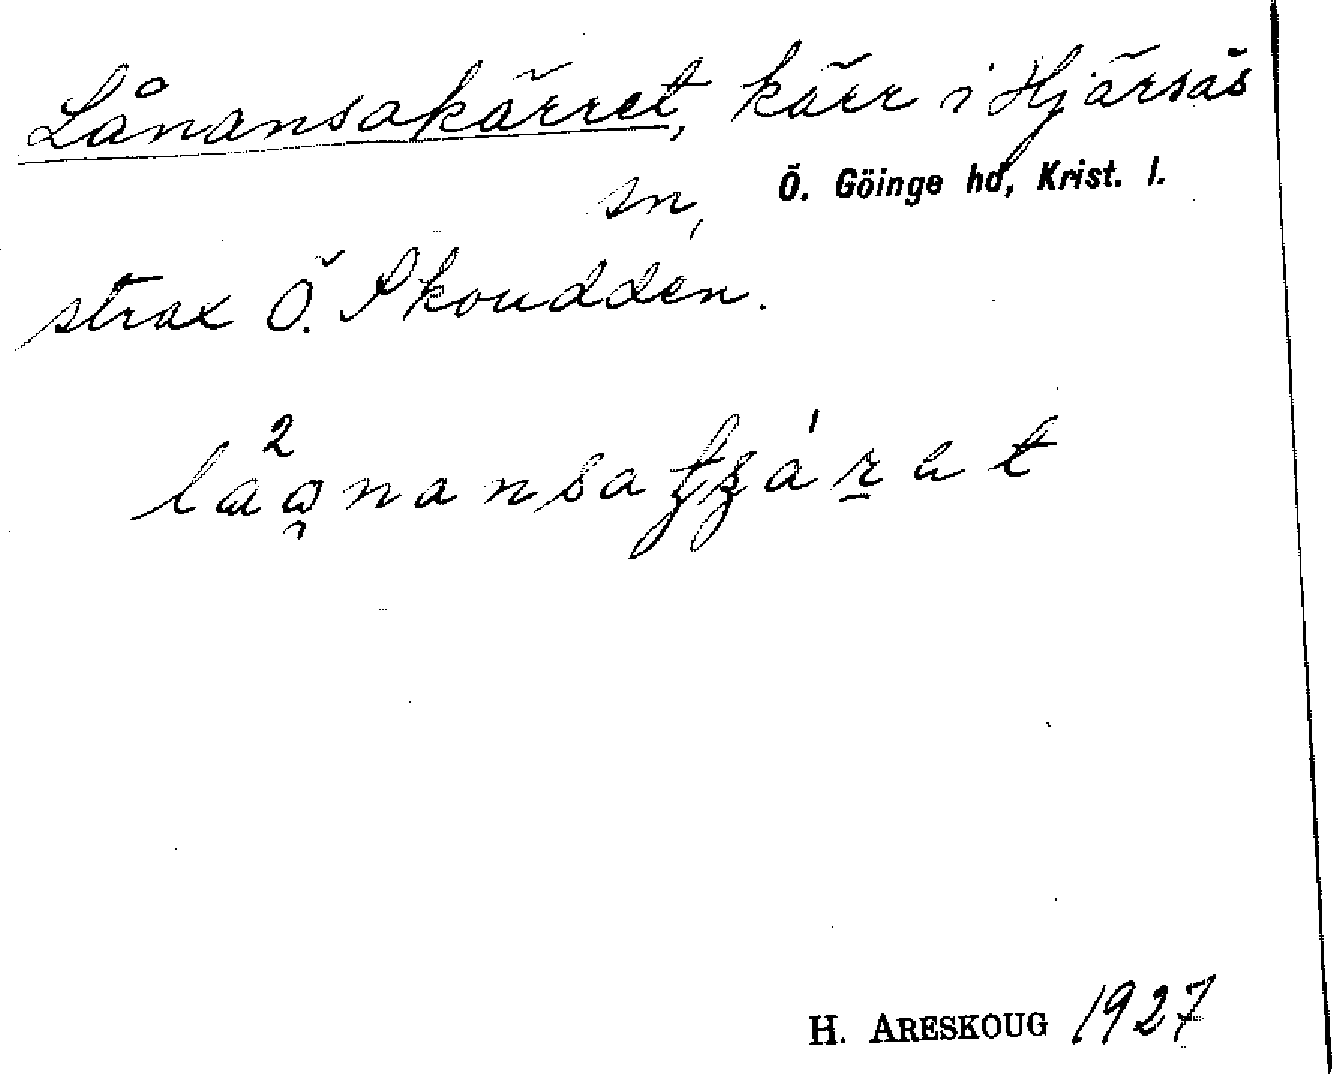 Lånansakärret, kärr i Hjärsås
sn, Ö. Göinge hd, Krist. l.
strax Ö. Skoudden.
H. ARESKOUG 1927